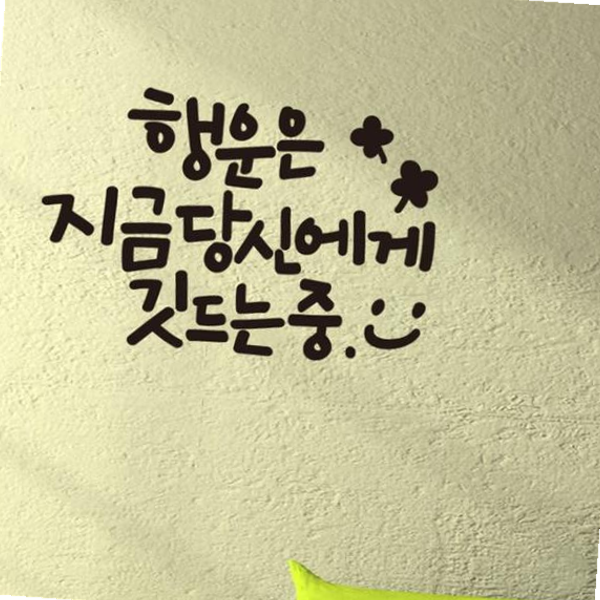 행운은
지금당신에게
깃드는중.